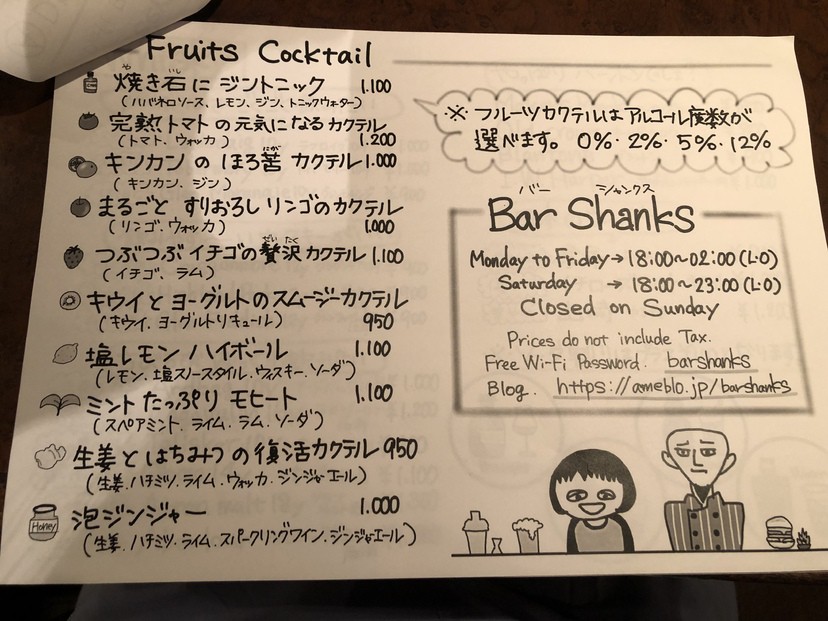 Fruits Cocktail
焼き石に ジントニック 1.100
(ハバネロソース、レモン、ジン、トニックウォーター)
完熟トマトの元気になるカクテル
(トマト、ウォッカ) 1.200
キンカン の ほろ苦 カクテル 1.000
(キンカン、ジン)
まるごと すりおろし リンゴのカクテル
(リンゴ、ウォッカ) 1.000
つぶつぶ イチゴの贅沢カクテル 1.100
(イチゴ、ラム)
キウイと ヨーグルトのスムージーカクテル
(キウイ、ヨーグルトリキュール) 950
塩レモン ハイボール 1.100
(レモン、塩スノースタイル、ウィスキー、ソーダ)
ミント たっぷり モヒート 1.100
(スペアミント、ライム、ラム、ソーダ)
生姜とはちみつの復活カクテル 950
(生姜、ハチミツ、ライム、ウォッカ、ジンジャーエール)
泡ジンジャー 1.000
(生姜、ハチミツ、ライム、スパークリングワイン、ジンジャエール)
Honey
※ フルーツカクテルはアルコール度数が
選べます。 0%・2%・5%・12%
バー シャンクス
Bar Shanks
Monday to Friday → 18:00~02:00 (L.O)
Saturday → 18:00~23:00 (L.O)
Closed on Sunday
Prices do not include Tax.
Free Wi-Fi Password. barshanks
Blog. https://ameblo.jp/barshanks